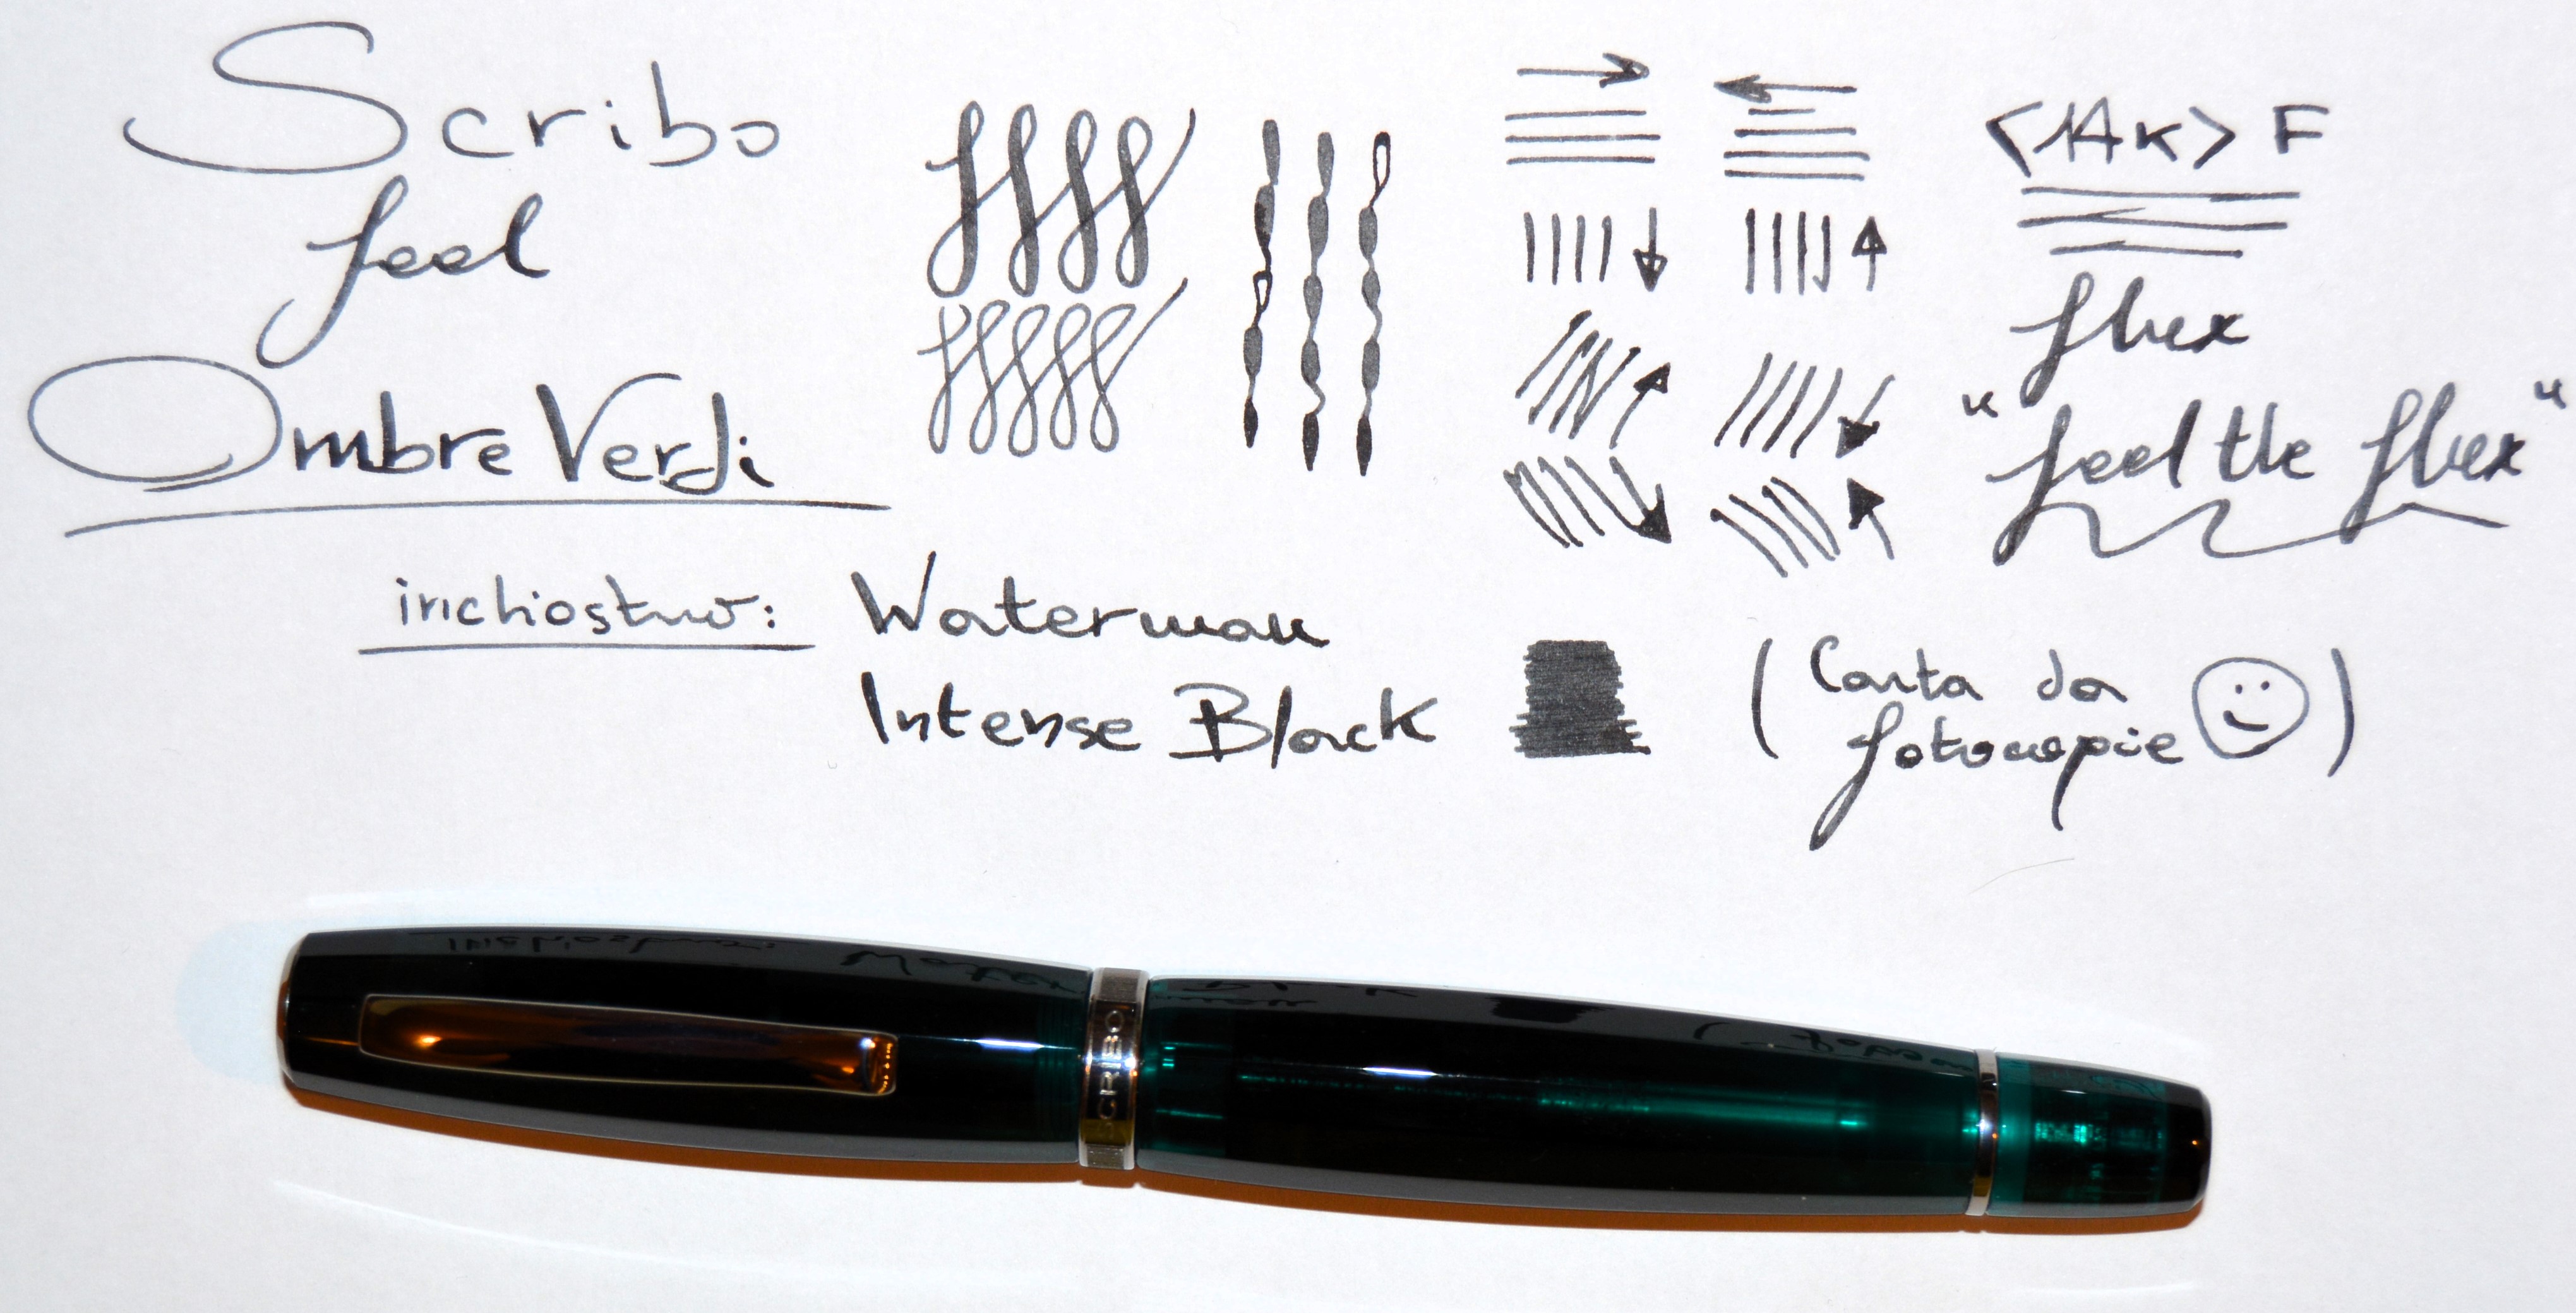 Scribo
feel
Ombre Verdi
inchiostro:
Waterman
Intense Black
<14k> F
flex
"feel the flex"
(Carta da
fotocopie)
SCRIBO